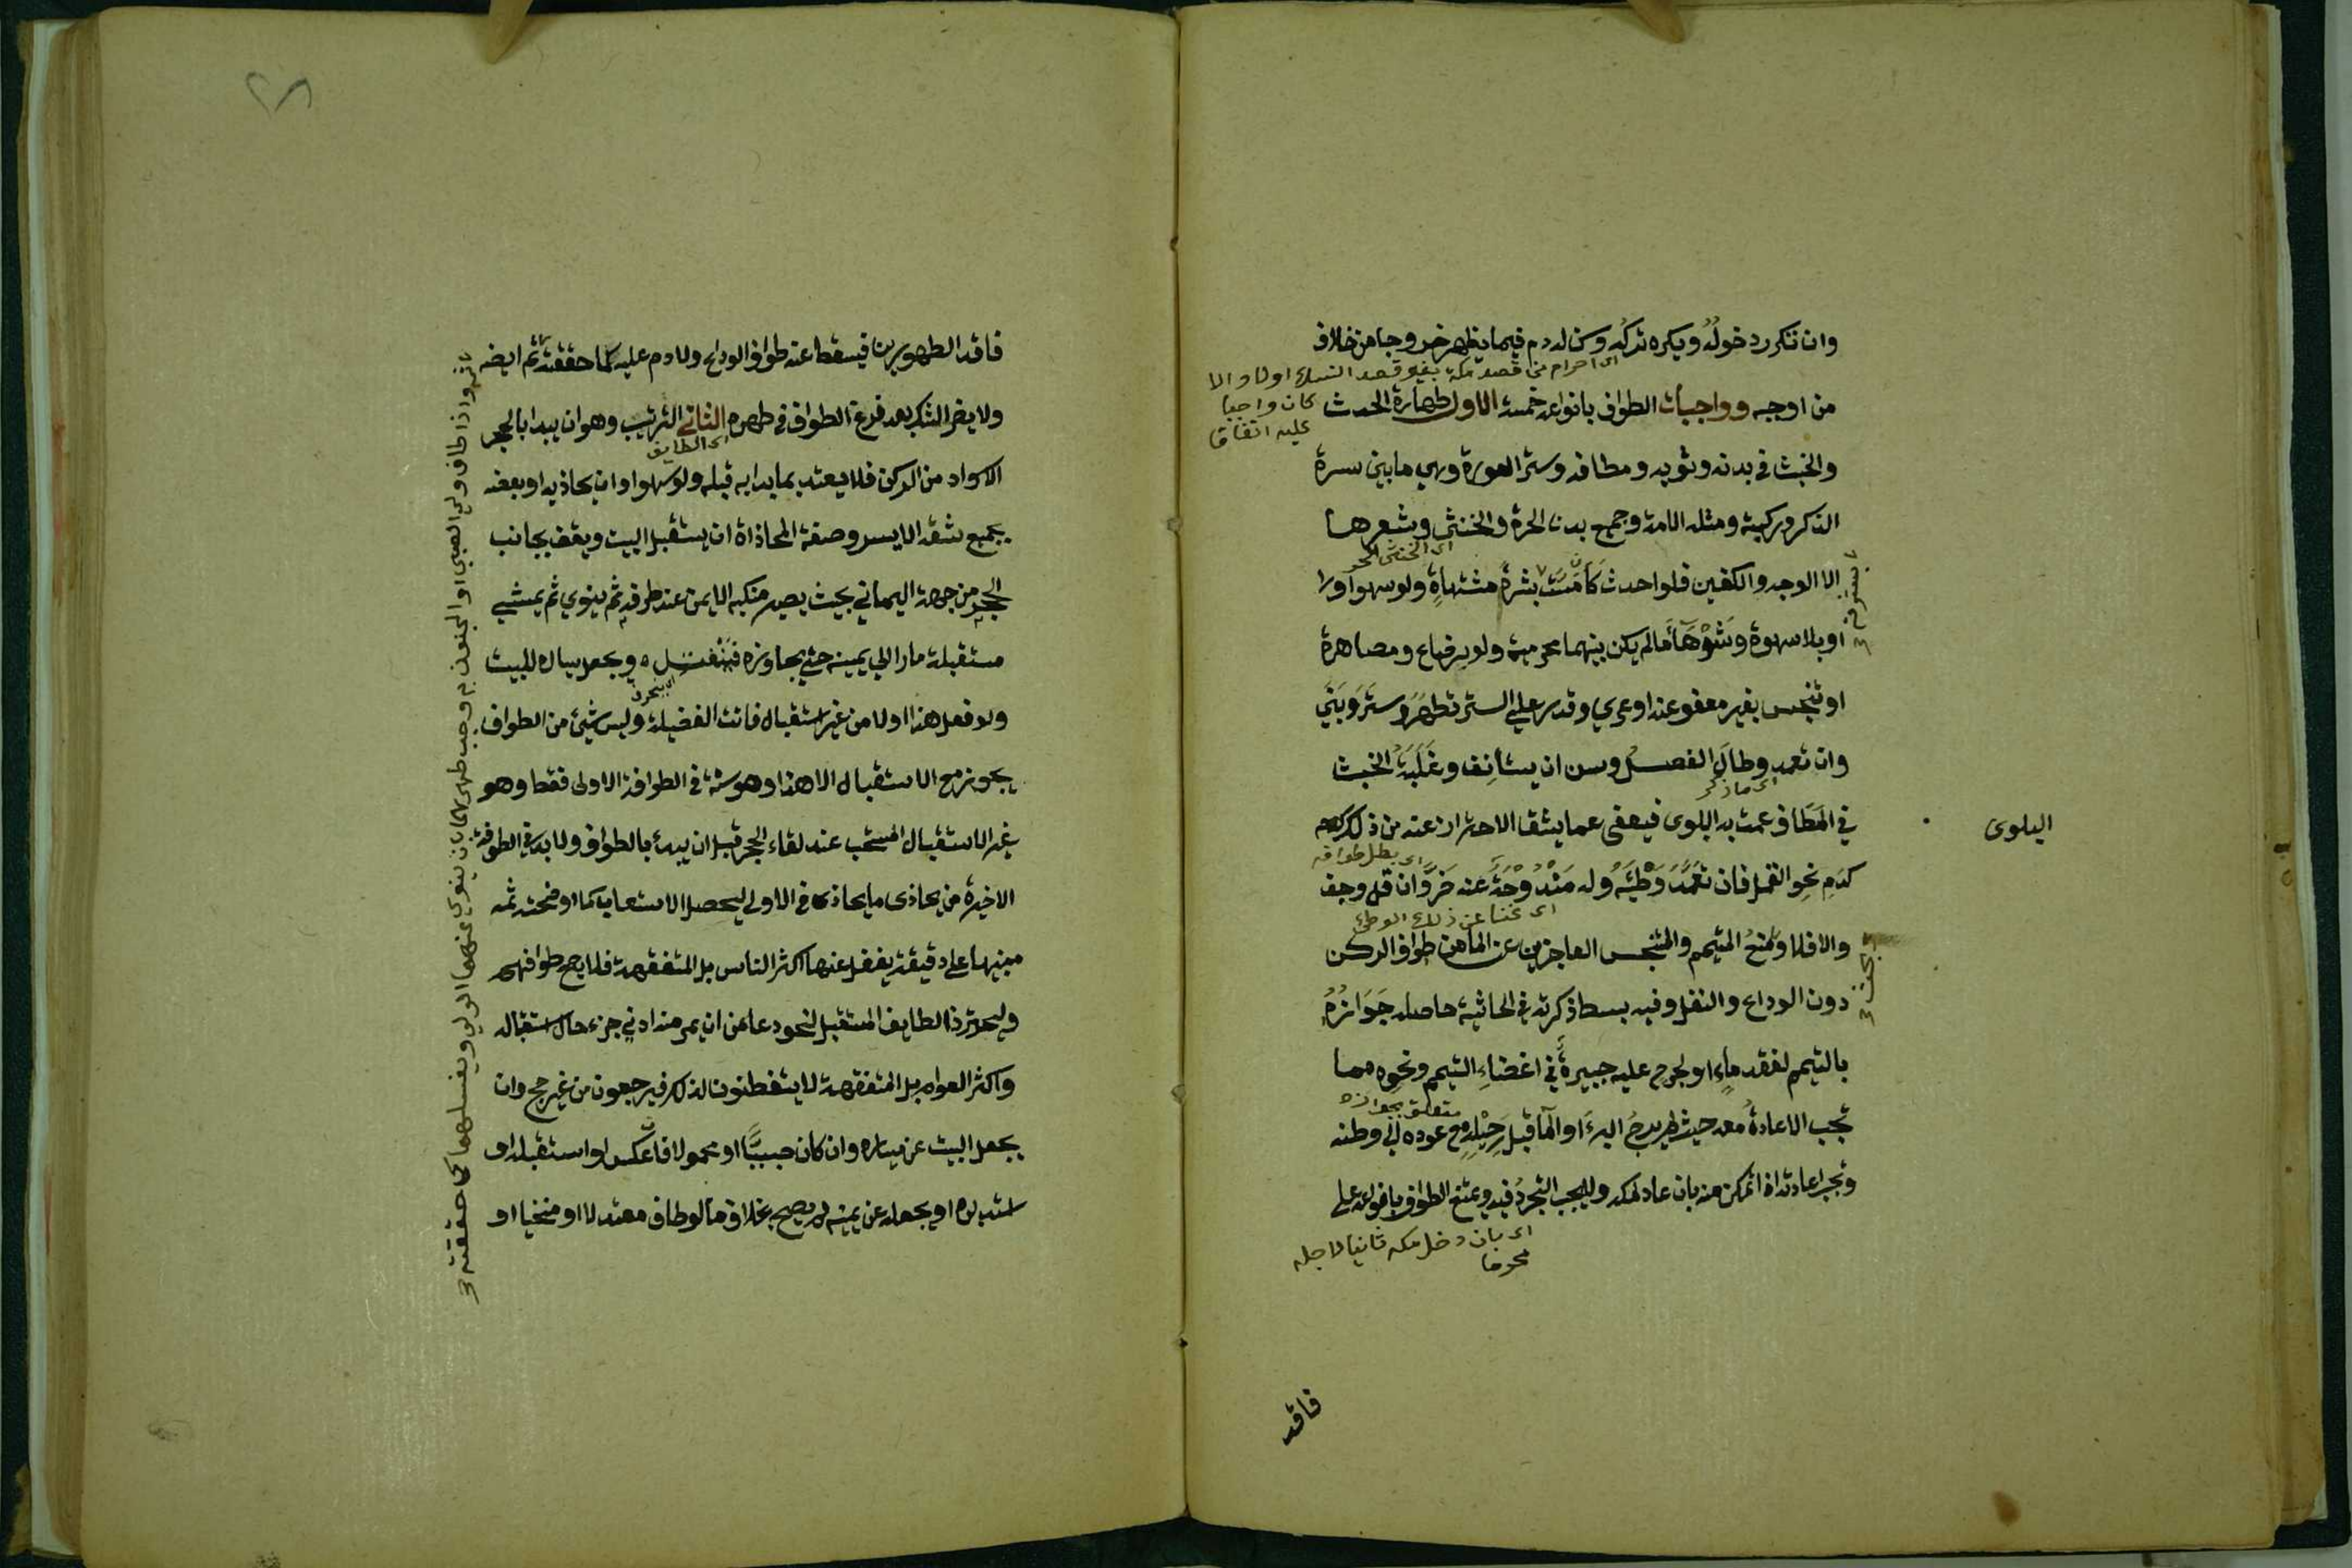 وان تكرر دخوله ويكره تركه وسن له دم فيما يظهر خروجا من خلاف
اى احرام من قصد مكة بغير قصد النسك اولا والا
كان واجبا
عليه اتفاقا
من اوجبه وواجبات الطواف بانواعه خمسة الاول طهارة الحدث
والخبث في بدنه وثوبه ومطافه وستر العورة وهي ما بين سرة
الذكر وركبته ومثله الامة وجميع بدن الحرة والخنثى وشعرهما
اى الخنثى الحر
الا الوجه والكفين فلو احدث كأ مسَّت بشرةً مشتهاةٍ ولو سهوا
او بلا شهوة وشوهآ ما لم يكن بينهما محرمية ولو برضاع ومصاهرة
او تنجس بغير معفو عنه او عري وقدر علي الستر تطهر وستر وبنى
وان تعمد وطال الفصل وسن ان يستأنف وغلبة الخبث
اى ما ذكر
في المطاف عمت به البلوى فيعفى عما يشق الاحتراز عنه من ذلك
البلوى
كدم نحو القمل فان تعمد وطئه وله مندوحة عنه ضر وان قل وجف
اى بطل طوافه
اى غنا عن ذلك الوطئ
والا فلا ويمنع المتيمم والمتنجس العاجزين عن الماء من طواف الركن
دون الوداع والنفل وفيه بسط ذكرته في الحاشية حاصله جوازه
بالتيمم لفقد ماء او لجرح عليه جبيرة في اعضاء التيمم ونحوه مما
تجب الاعادة معه حيث لم يرج البرء او المآ قبل رحيله مع عوده الى وطنه
متعلق بجوازه
وتجب اعادته اذا تمكن منه بان عاد لمكة ولا يجب التجرد فيه ويمتنع الطواف بانواعه على
اى بان دخل مكه ثانيا لاجله
محرما
فاقد
٢٨
فاقد الطهورين فيسقط عنه طواف الوداع ولا دم عليه كما حققته ثم ايضه
ولا يضر الشك بعد فرغ الطواف في طهره الثاني الترتيب وهو ان يبدا بالحجر
اى الطايف
الاسود من الركن فلا يعتد بما بدا به قبله ولو سهوا وان يحاذيه او بعضه
بجميع شقه الايسر وصفة المحاذاة ان يستقبل البيت ويقف بجانب
الحجر من جهة اليماني بحيث يصير منكبه الايمن عند طرفه ثم ينوي ثم يمشي
مستقبله مارا الي يمينه حتي يجاوزه فينفتل ويجعل يساره للبيت
اى ينحرف
ولو فعل هذا اولا من غير استقبال فاتت الفضيلة وليس شيئ من الطواف
يجوز مع الاستقبال الا هذا وهو سنة في الطوافة الاولى فقط وهو
غير الاستقبال المستحب عند لقاء الحجر قبل ان يبدأ بالطواف ولا بد في الطوفة
الاخيرة من يحاذى ما يحاذى في الاولي ليحصل الاستيعاب كما اوضحته ثمه
مبنيا على دقيقة يغفل عنها اكثر الناس بل المتفقهة فلا يصح طوافهم
وليحترز الطايف المستقبل لنحو دعا من ان يمر منه ادني جزء حال استقباله
واكثر العوام بل المتفقهة لا يتفطنون لذلك فيرجعون من غير حج وان
يجعل البيت عن يساره وان كان صبيا او محمولا فان عكس او استقبله او
استدبره او يجعله عن يمينه لم يصح بخلاف ما لو طاف معتدلا او منحنيا او
واذا طاف ولي الصبي او المجنون به وجب طهرهما بان ينوي عنهما الولي ويغسلهما كما حققته